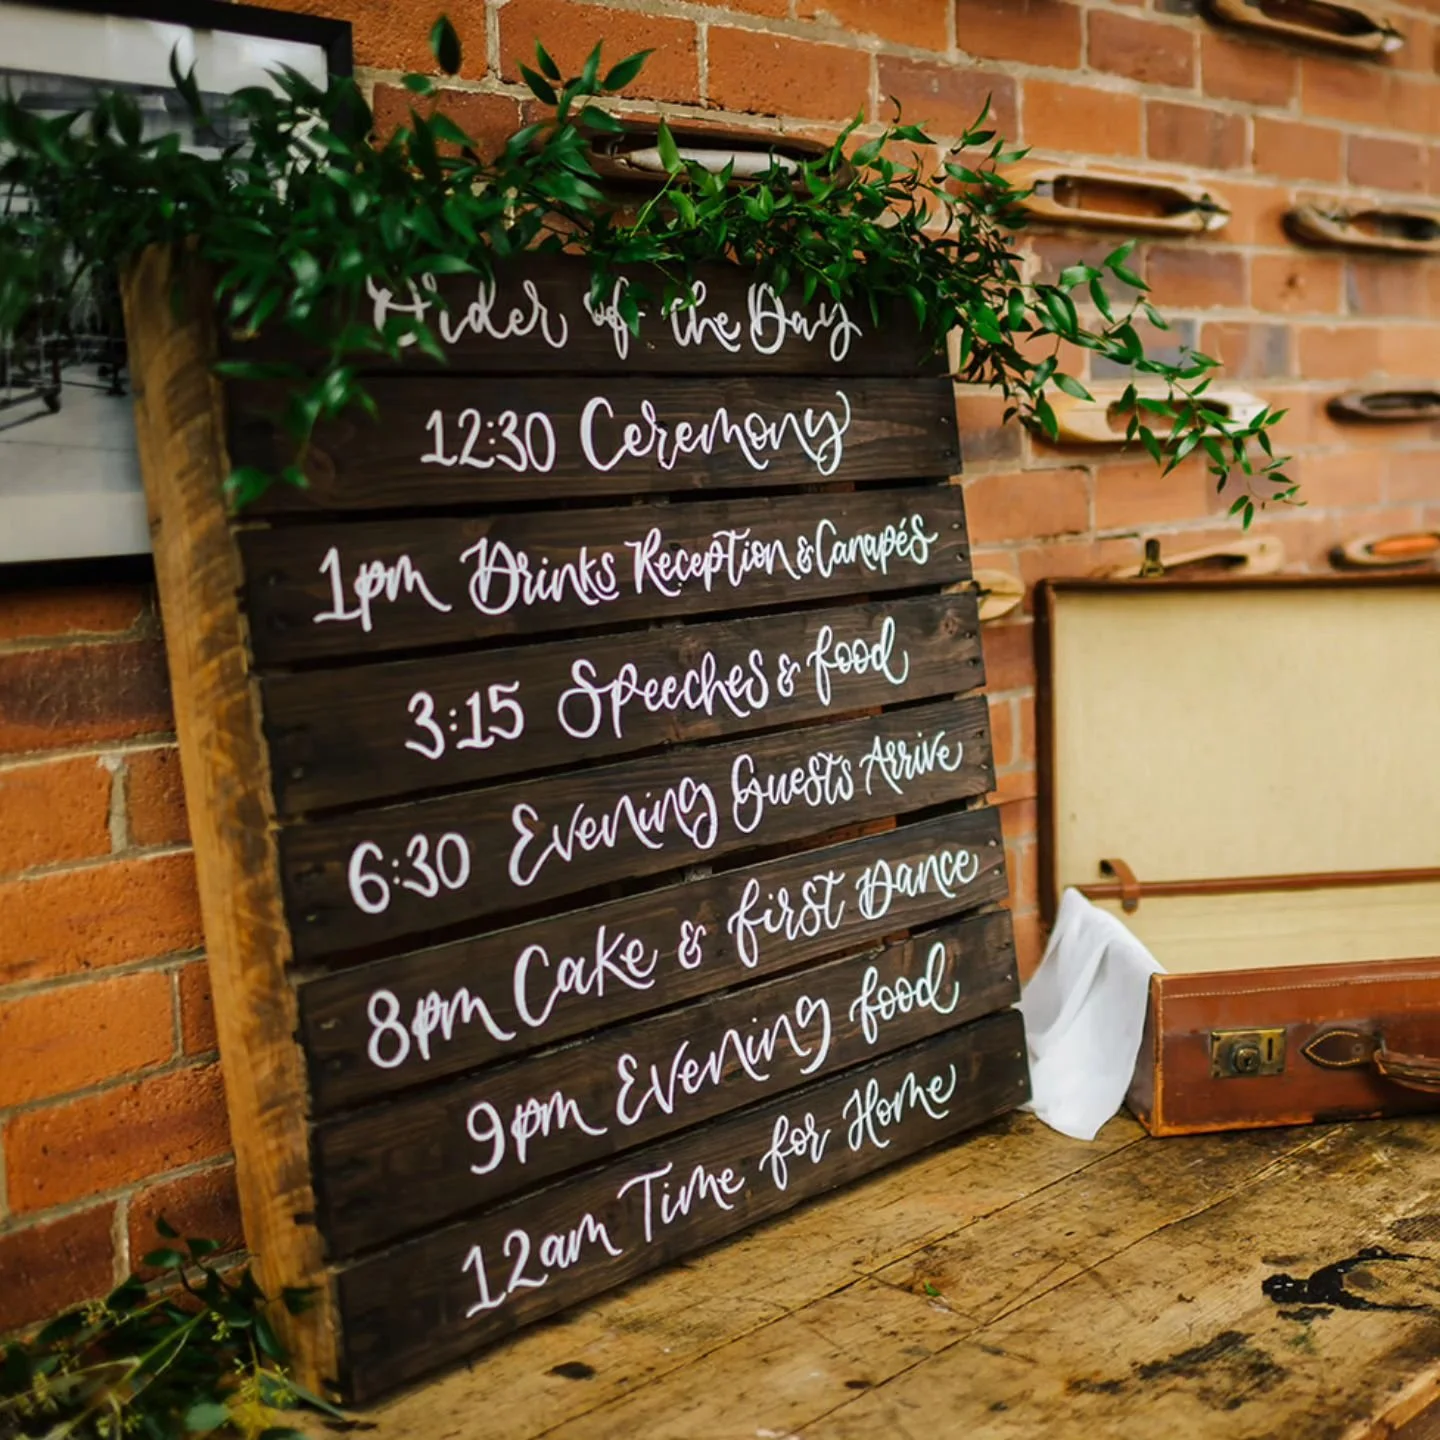 Order of the Day
12:30 Ceremony
1pm Drinks Reception & Canapés
3:15 Speeches & food
6:30 Evening Guests Arrive
8pm Cake & first Dance
9pm Evening food
12am Time for Home